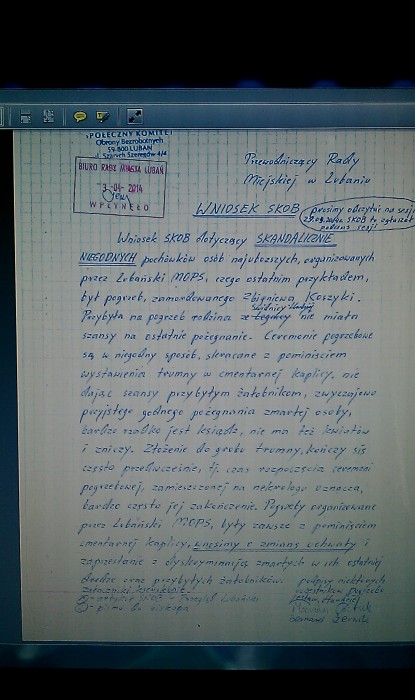 SPOŁECZNY KOMITET
Obrony Bezrobotnych
59-800 LUBAŃ
Szarych Szeregów 4/4
BIURO RADY MIASTA LUBAŃ
3 -04- 2014
WPŁYNĘŁO
Przewodniczący Rady
Miejskiej w Lubaniu
WNIOSEK SKOB
prosimy odczytać na sesji
SKOB to zgłaszał
podczas sesji
Wniosek SKOB dotyczący SKANDALICZNIE
NIEGODNYCH pochówków osób najuboższych, organizowanych
przez Lubański MOPS, czego ostatnim przykładem,
był pogrzeb, zamordowanego Zbigniewa Koszyki.
Przybyła na pogrzeb rodzina ze nie miała
szansy na ostatnie pożegnanie. Ceremonie pogrzebowe
są w niegodny sposób, skracane z pominięciem
wystawienia trumny w cmentarnej kaplicy, nie
dając szansy przybyłym żałobnikom, zwyczajowo
przyjętego godnego pożegnania zmarłej osoby,
bardzo rzadko jest ksiądz, nie ma też kwiatów
i zniczy. Złożenie do grobu trumny, kończy się
często przedwcześnie, tj. czas rozpoczęcia ceremonii
pogrzebowej, zamieszczonej na nekrologu oznacza,
bardzo często jej zakończenie. Pogrzeby organizowane
przez Lubański MOPS, były zawsze z pominięciem
cmentarnej kaplicy, wnosimy o zmianę uchwały i
zaprzestanie z dyskryminacją zmarłych w ich ostatniej
drodze oraz przybyłych żałobników. podpisy niektórych
uczestników pogrzebu
- artykuł SKOB - Przegląd Lubański
- pismo do biskupa